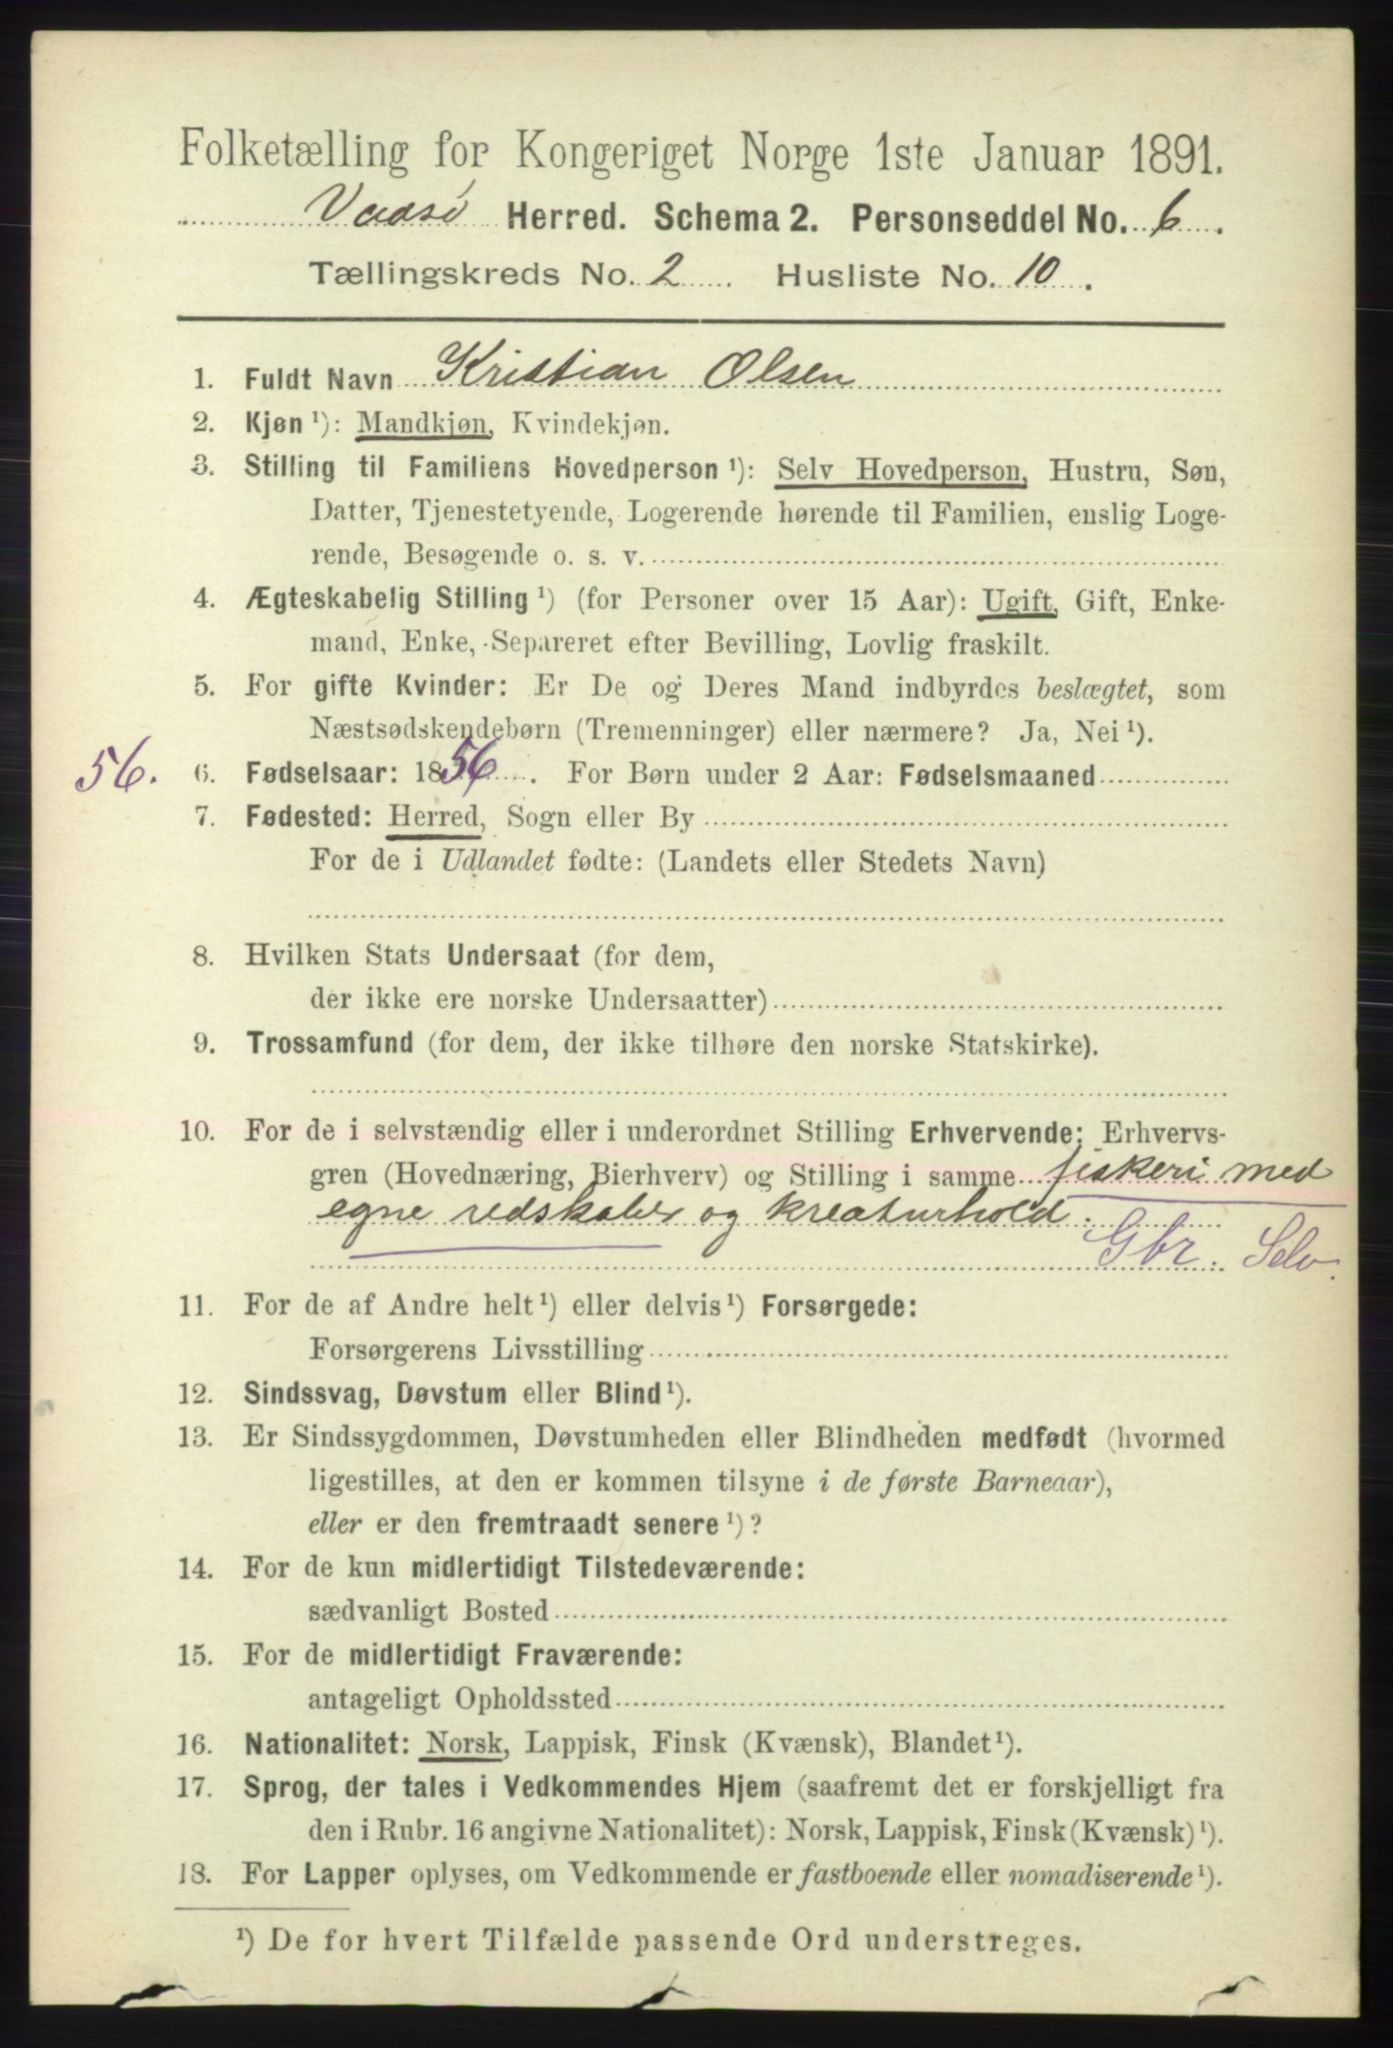 Folketælling for Kongeriget Norge 1ste Januar 1891.
Vadsø Herred. Schema 2. Personseddel No. 6.
Tællingskreds No. 2. Husliste No. 10.
1. Fuldt Navn Kristian Olsen
2. Kjøn ¹): Mandkjøn, Kvindekjøn.
3. Stilling til Familiens Hovedperson ¹): Selv Hovedperson, Hustru, Søn,
Datter, Tjenestetyende, Logerende hørende til Familien, enslig Loge-
rende, Besøgende o. s. v.
4. Ægteskabelig Stilling ¹) (for Personer over 15 Aar): Ugift, Gift, Enke-
mand, Enke, Separeret efter Bevilling, Lovlig fraskilt.
5. For gifte Kvinder: Er De og Deres Mand indbyrdes beslægtet, som
Næstsødskendebørn (Tremenninger) eller nærmere? Ja, Nei ¹).
56. 6. Fødselsaar: 1856. For Børn under 2 Aar: Fødselsmaaned
7. Fødested: Herred, Sogn eller By
For de i Udlandet fødte: (Landets eller Stedets Navn)
8. Hvilken Stats Undersaat (for dem,
der ikke ere norske Undersaatter)
9. Trossamfund (for dem, der ikke tilhøre den norske Statskirke).
10. For de i selvstændig eller i underordnet Stilling Erhvervende: Erhvervs-
gren (Hovednæring, Bierhverv) og Stilling i samme fiskeri med
egne redskaber og kreaturhold.
Gbr. Selv.
11. For de af Andre helt ¹) eller delvis ¹) Forsørgede:
Forsørgerens Livsstilling
12. Sindssvag, Døvstum eller Blind ¹).
13. Er Sindssygdommen, Døvstumheden eller Blindheden medfødt (hvormed
ligestilles, at den er kommen tilsyne i de første Barneaar),
eller er den fremtraadt senere ¹)?
14. For de kun midlertidigt Tilstedeværende:
sædvanligt Bosted
15. For de midlertidigt Fraværende:
antageligt Opholdssted
16. Nationalitet: Norsk, Lappisk, Finsk (Kvænsk), Blandet ¹).
17. Sprog, der tales i Vedkommendes Hjem (saafremt det er forskjelligt fra
den i Rubr. 16 angivne Nationalitet): Norsk, Lappisk, Finsk (Kvænsk) ¹).
18. For Lapper oplyses, om Vedkommende er fastboende eller nomadiserende ¹).
¹) De for hvert Tilfælde passende Ord understreges.